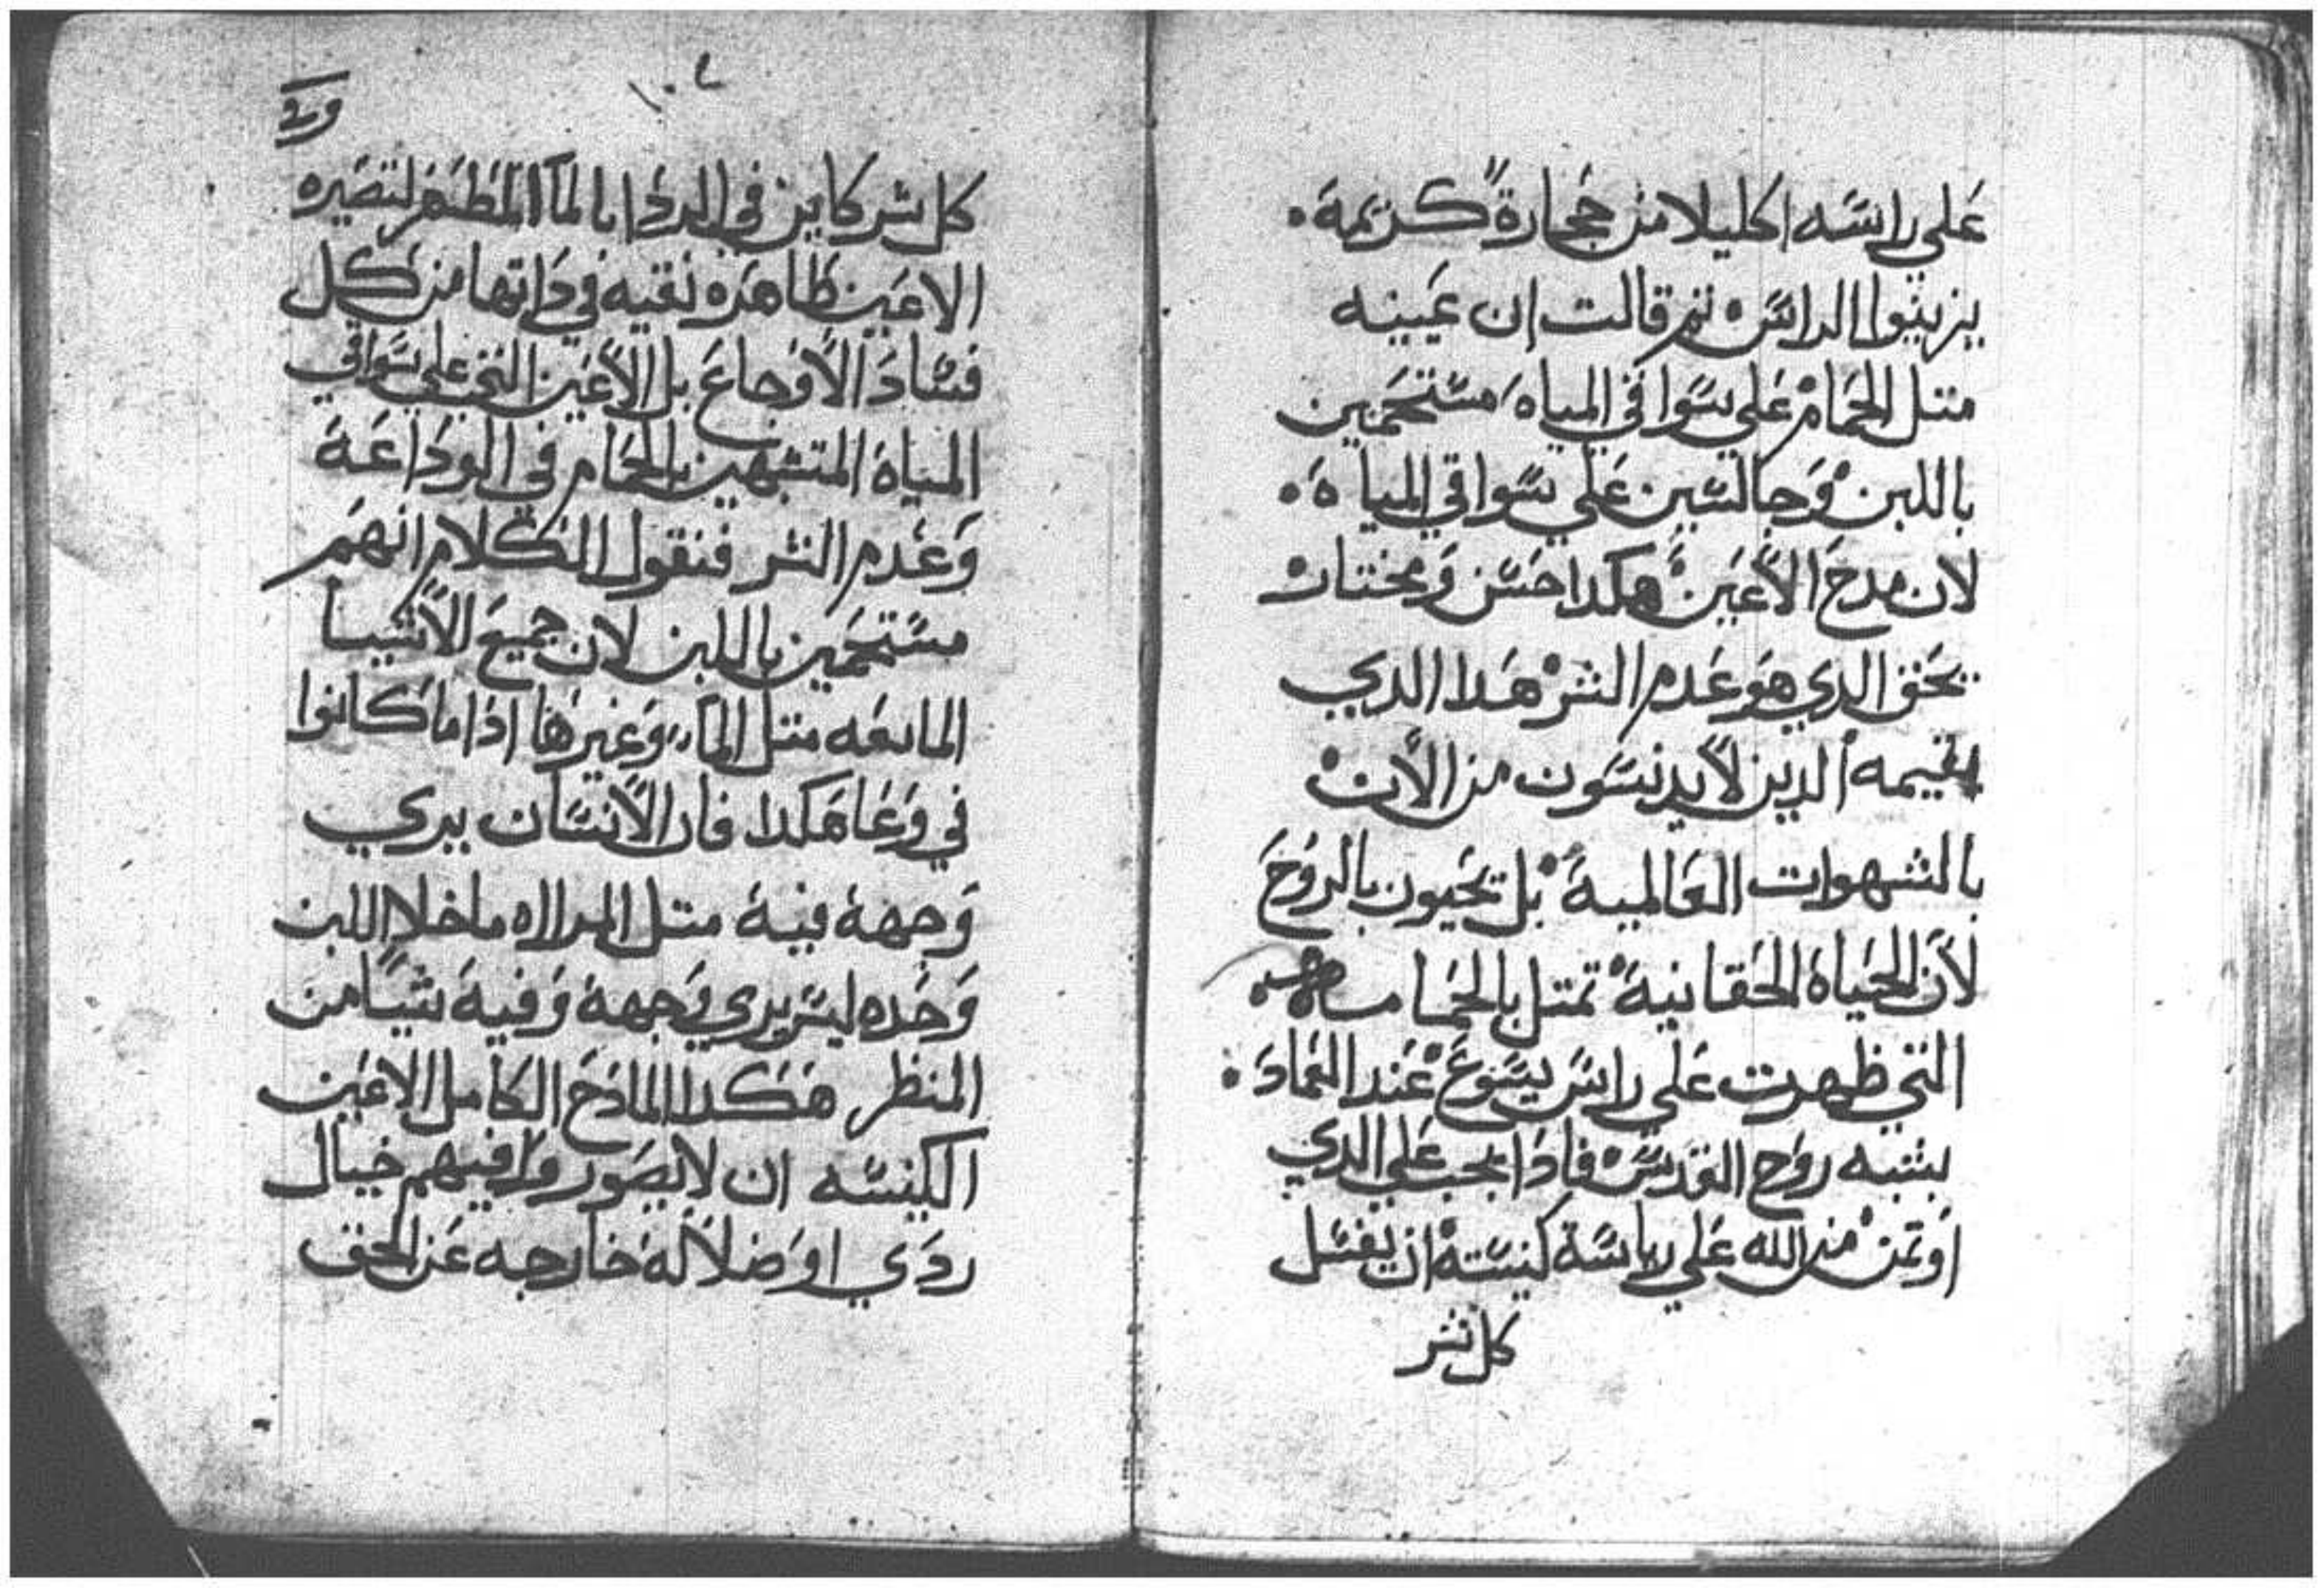 علي راسه اكليلا من حجارة كريمة
يزينوا الراس تم قالت ان عينيه
متل الحمام علي سواقي المياه مستحمين
باللبن وجالسين علي سواقي المياه
لان مدح الاعين هكدا حسن ومختار
بحق الدي هو عدم الشر هدا الدي
الدين لا يدنسون من الان
بالشهوات العالمية بل يحيون بالروح
لان الحياة الحقانية تمتل بالحمامه
التي ظهرت علي راس يسوع عند العماد
بشبه روح القدس فادا يجب علي الدي
اوتمن من الله علي رياسة كنيسته ان يغسل
كل شر
كل شر كاين في الردا بالما المطهر لتصيره
الاعين طاهره نقيه في داتها من كل
فساد الاوجاع بل الاعين التي علي سواقي
المياة المتشبهين بالحمام في الوداعة
وعدم الشر فنقول الكلام انهم
مستحمين باللبن لان جميع الاشيا
المايعه متل الما وغيرها ادا ما كانوا
في وعا هكدا فان الانسان يري
وجهة فية متل المراه ما خلا اللبن
وحده ليس يري وجهة وفية شيا من
المنظر هكدا المادح الكامل الاعين
الكنيسه ان لا يصوروا فيهم خيال
ردي او ضلالة خارجه عن الحق